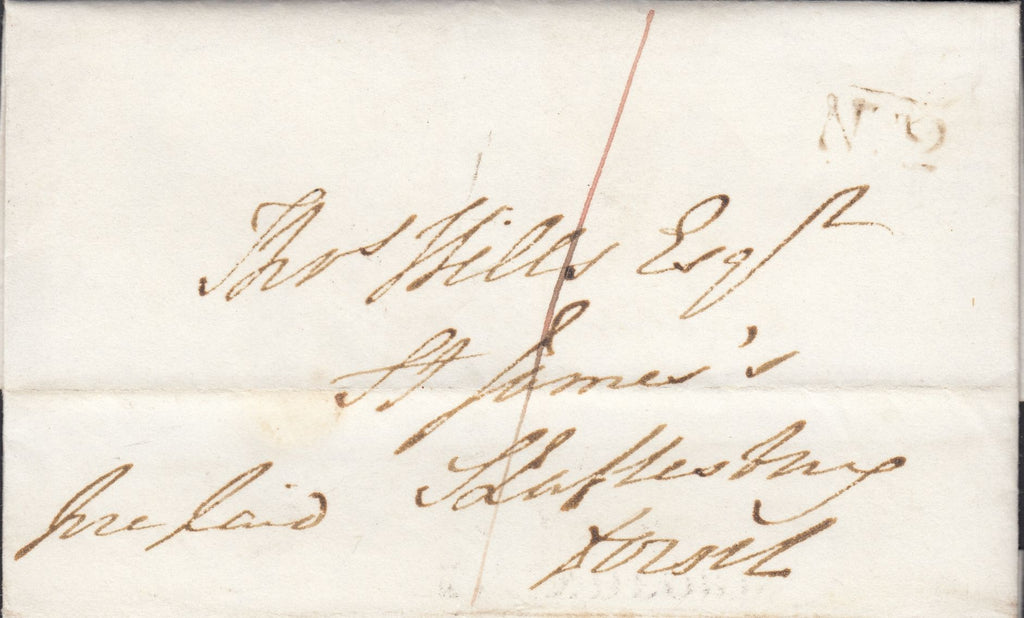 No. 2
Thos Wills Esqr
St James's
Shaftesbury
Pre paid
Dorset